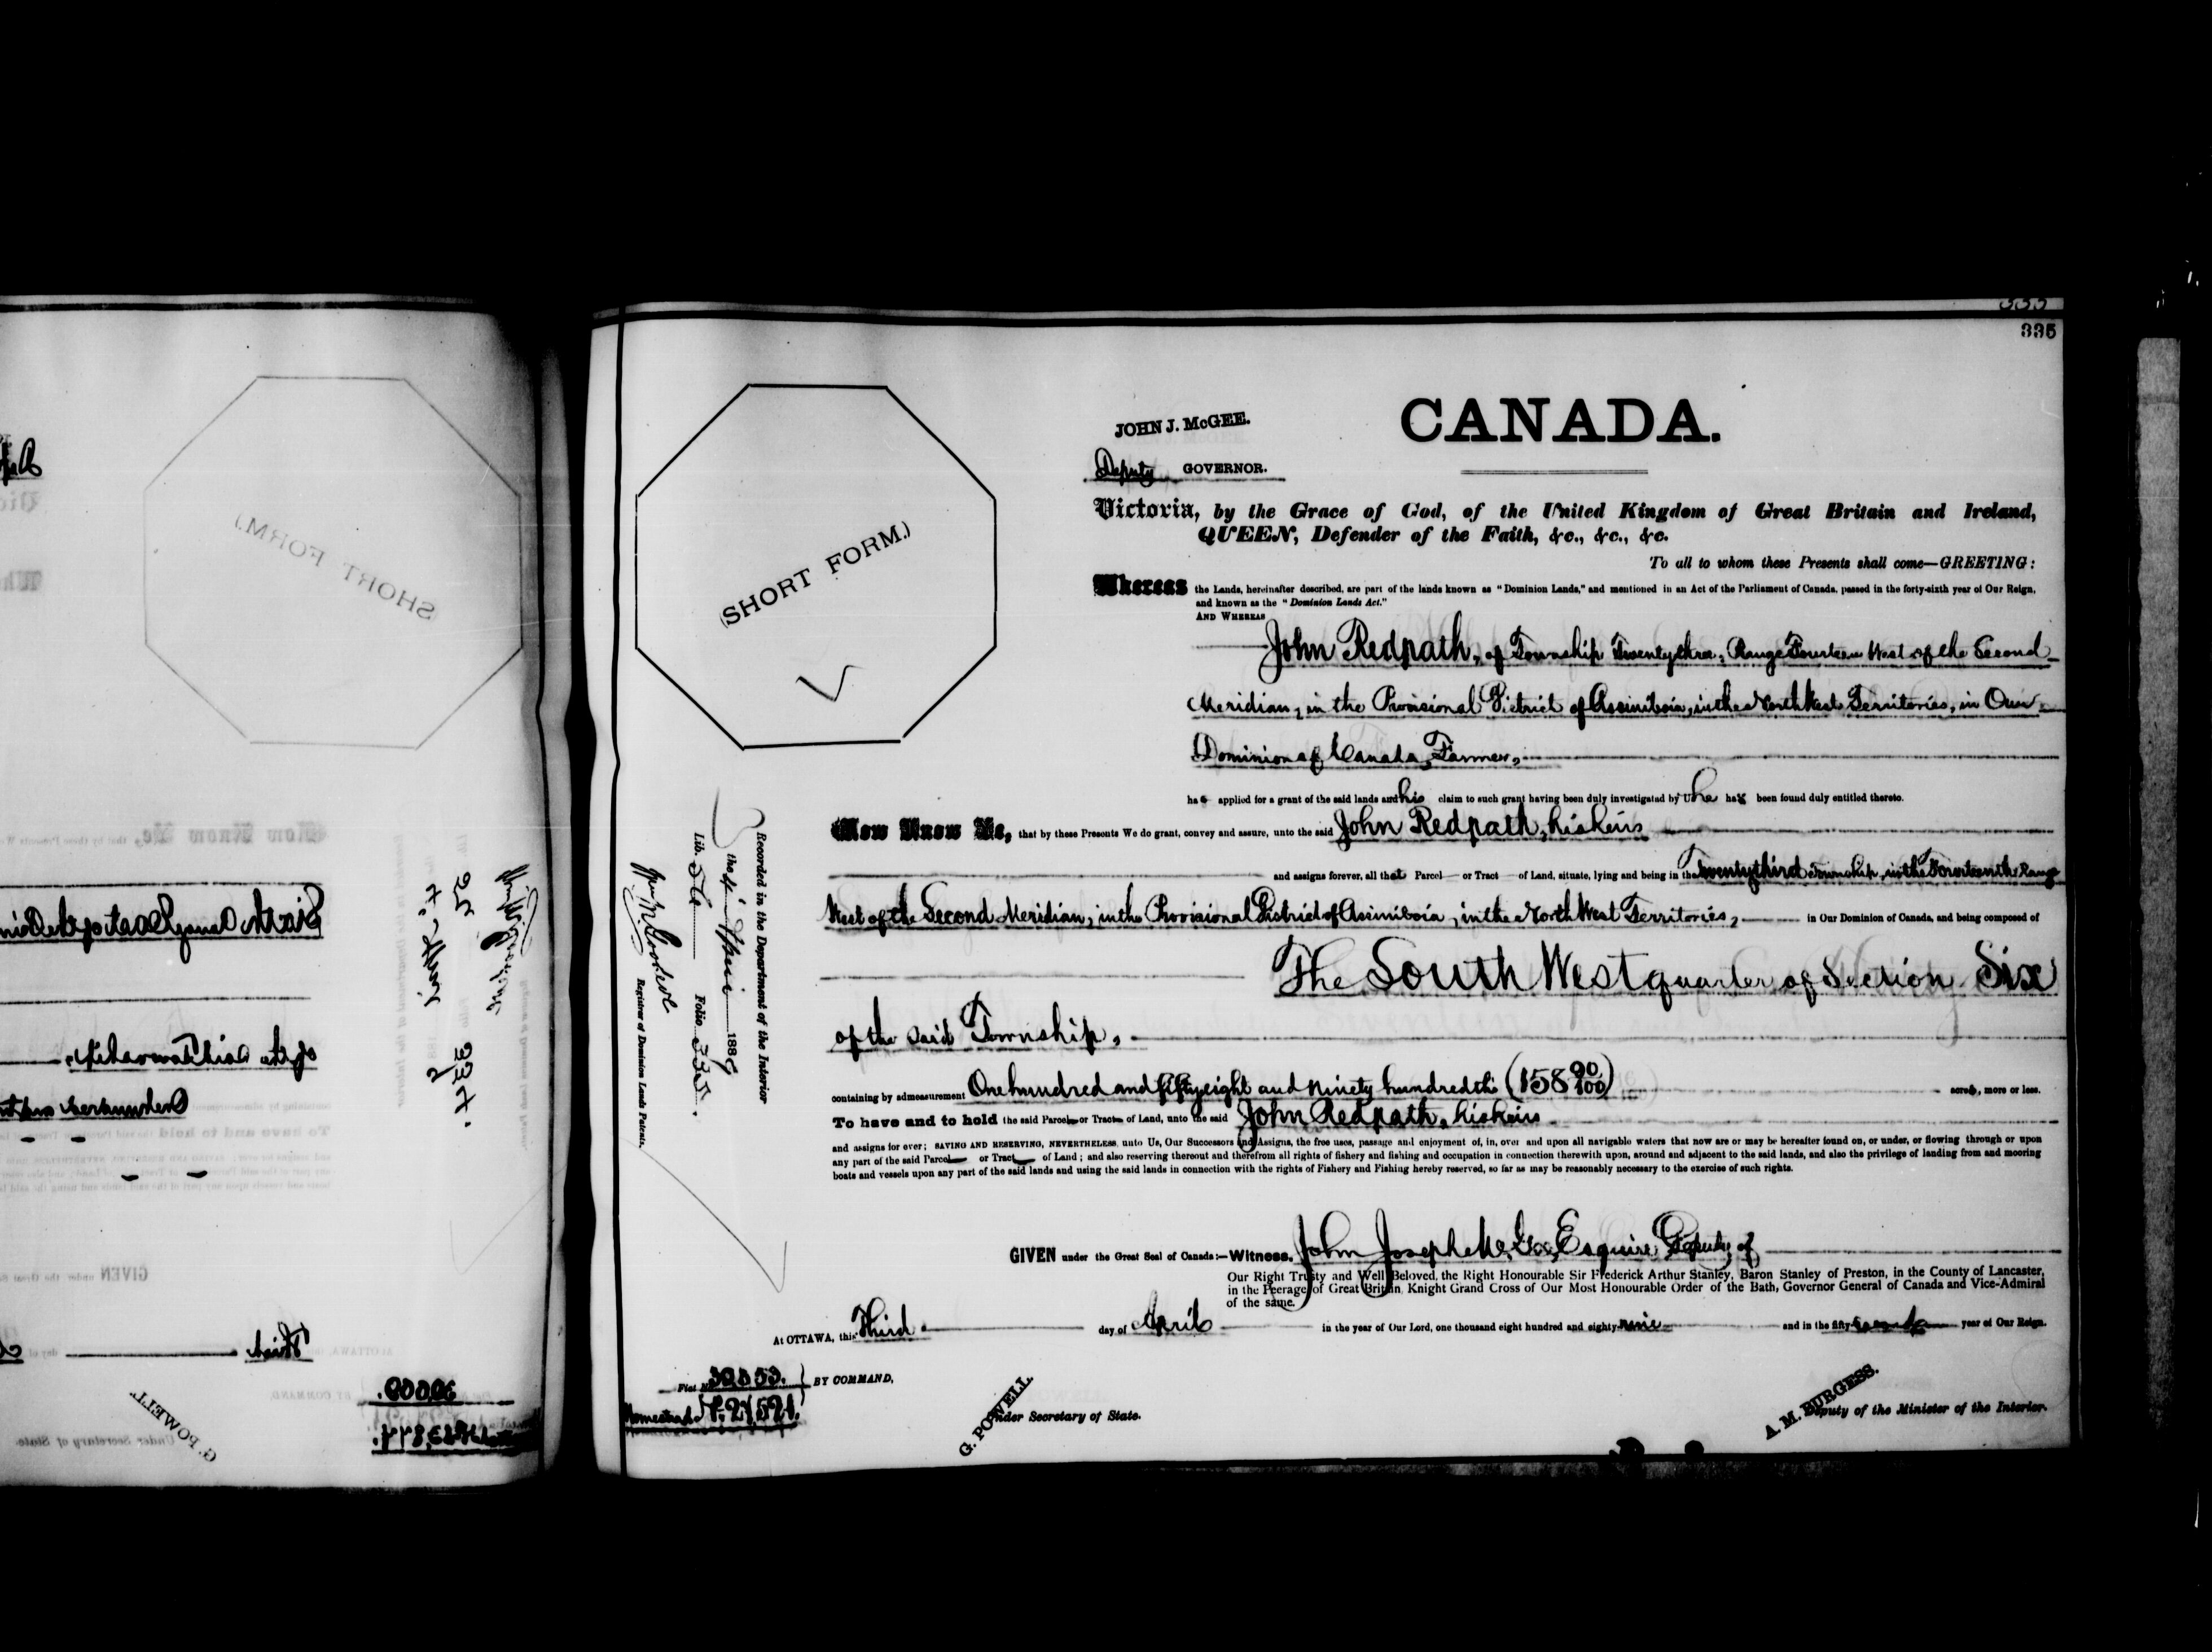 335
CANADA.
JOHN J. McGEE.
Deputy GOVERNOR.
Victoria, by the Grace of God, of the United Kingdom of Great Britain and Ireland,
QUEEN, Defender of the Faith, &c., &c., &c.
To all to whom these Presents shall come—GREETING:
Whereas the Lands, hereinafter described, are part of the lands known as "Dominion Lands," and mentioned in an Act of the Parliament of Canada, passed in the forty-sixth year of Our Reign,
and known as the "Dominion Lands Act."
AND WHEREAS
John Redpath, of Township Twenty three, Range Fourteen West of the Second
Meridian, in the Provisional District of Assiniboia, in the North West Territories, in Our
Dominion of Canada, Farmer,
has applied for a grant of the said lands and his claim to such grant having been duly investigated by Us he has been found duly entitled thereto.
Now Know Ye, that by these Presents We do grant, convey and assure, unto the said John Redpath, his heirs
and assigns forever, all that Parcel or Tract of Land, situate, lying and being in the Twenty third Township, in the Fourteenth Range
West of the Second Meridian, in the Provisional District of Assiniboia, in the North West Territories, in Our Dominion of Canada, and being composed of
The South West quarter of Section Six
of the said Township,
containing by admeasurement One hundred and fifty eight and ninety hundredths (158 90/100) acres, more or less.
To have and to hold the said Parcel or Tract of Land, unto the said John Redpath, his heirs
and assigns for ever; SAVING AND RESERVING, NEVERTHELESS, unto Us, Our Successors and Assigns, the free uses, passage and enjoyment of, in, over and upon all navigable waters that now are or may be hereafter found on, or under, or flowing through or upon
any part of the said Parcel or Tract of Land; and also reserving thereout and therefrom all rights of fishery and fishing and occupation in connection therewith upon, around and adjacent to the said lands, and also the privilege of landing from and mooring
boats and vessels upon any part of the said lands and using the said lands in connection with the rights of Fishery and Fishing hereby reserved, so far as may be reasonably necessary to the exercise of such rights.
GIVEN under the Great Seal of Canada:—Witness, John Joseph McGee, Esquire, Deputy of
Our Right Trusty and Well Beloved, the Right Honourable Sir Frederick Arthur Stanley, Baron Stanley of Preston, in the County of Lancaster,
in the Peerage of Great Britain, Knight Grand Cross of Our Most Honourable Order of the Bath, Governor General of Canada and Vice-Admiral
of the same.
At OTTAWA, this Third day of April in the year of Our Lord, one thousand eight hundred and eighty nine and in the fifty second year of Our Reign.
BY COMMAND,
G. POWELL.
Under Secretary of State.
A. M. BURGESS.
Deputy of the Minister of the Interior.
(SHORT FORM.)
Recorded in the Department of the Interior
the 4' April 1889
Lib. Folio 335.
Registrar of Dominion Lands Patents.
Fiat No
Homestead
SHORT FORM.)
GIVEN
G. POWELL.
Under Secretary of State